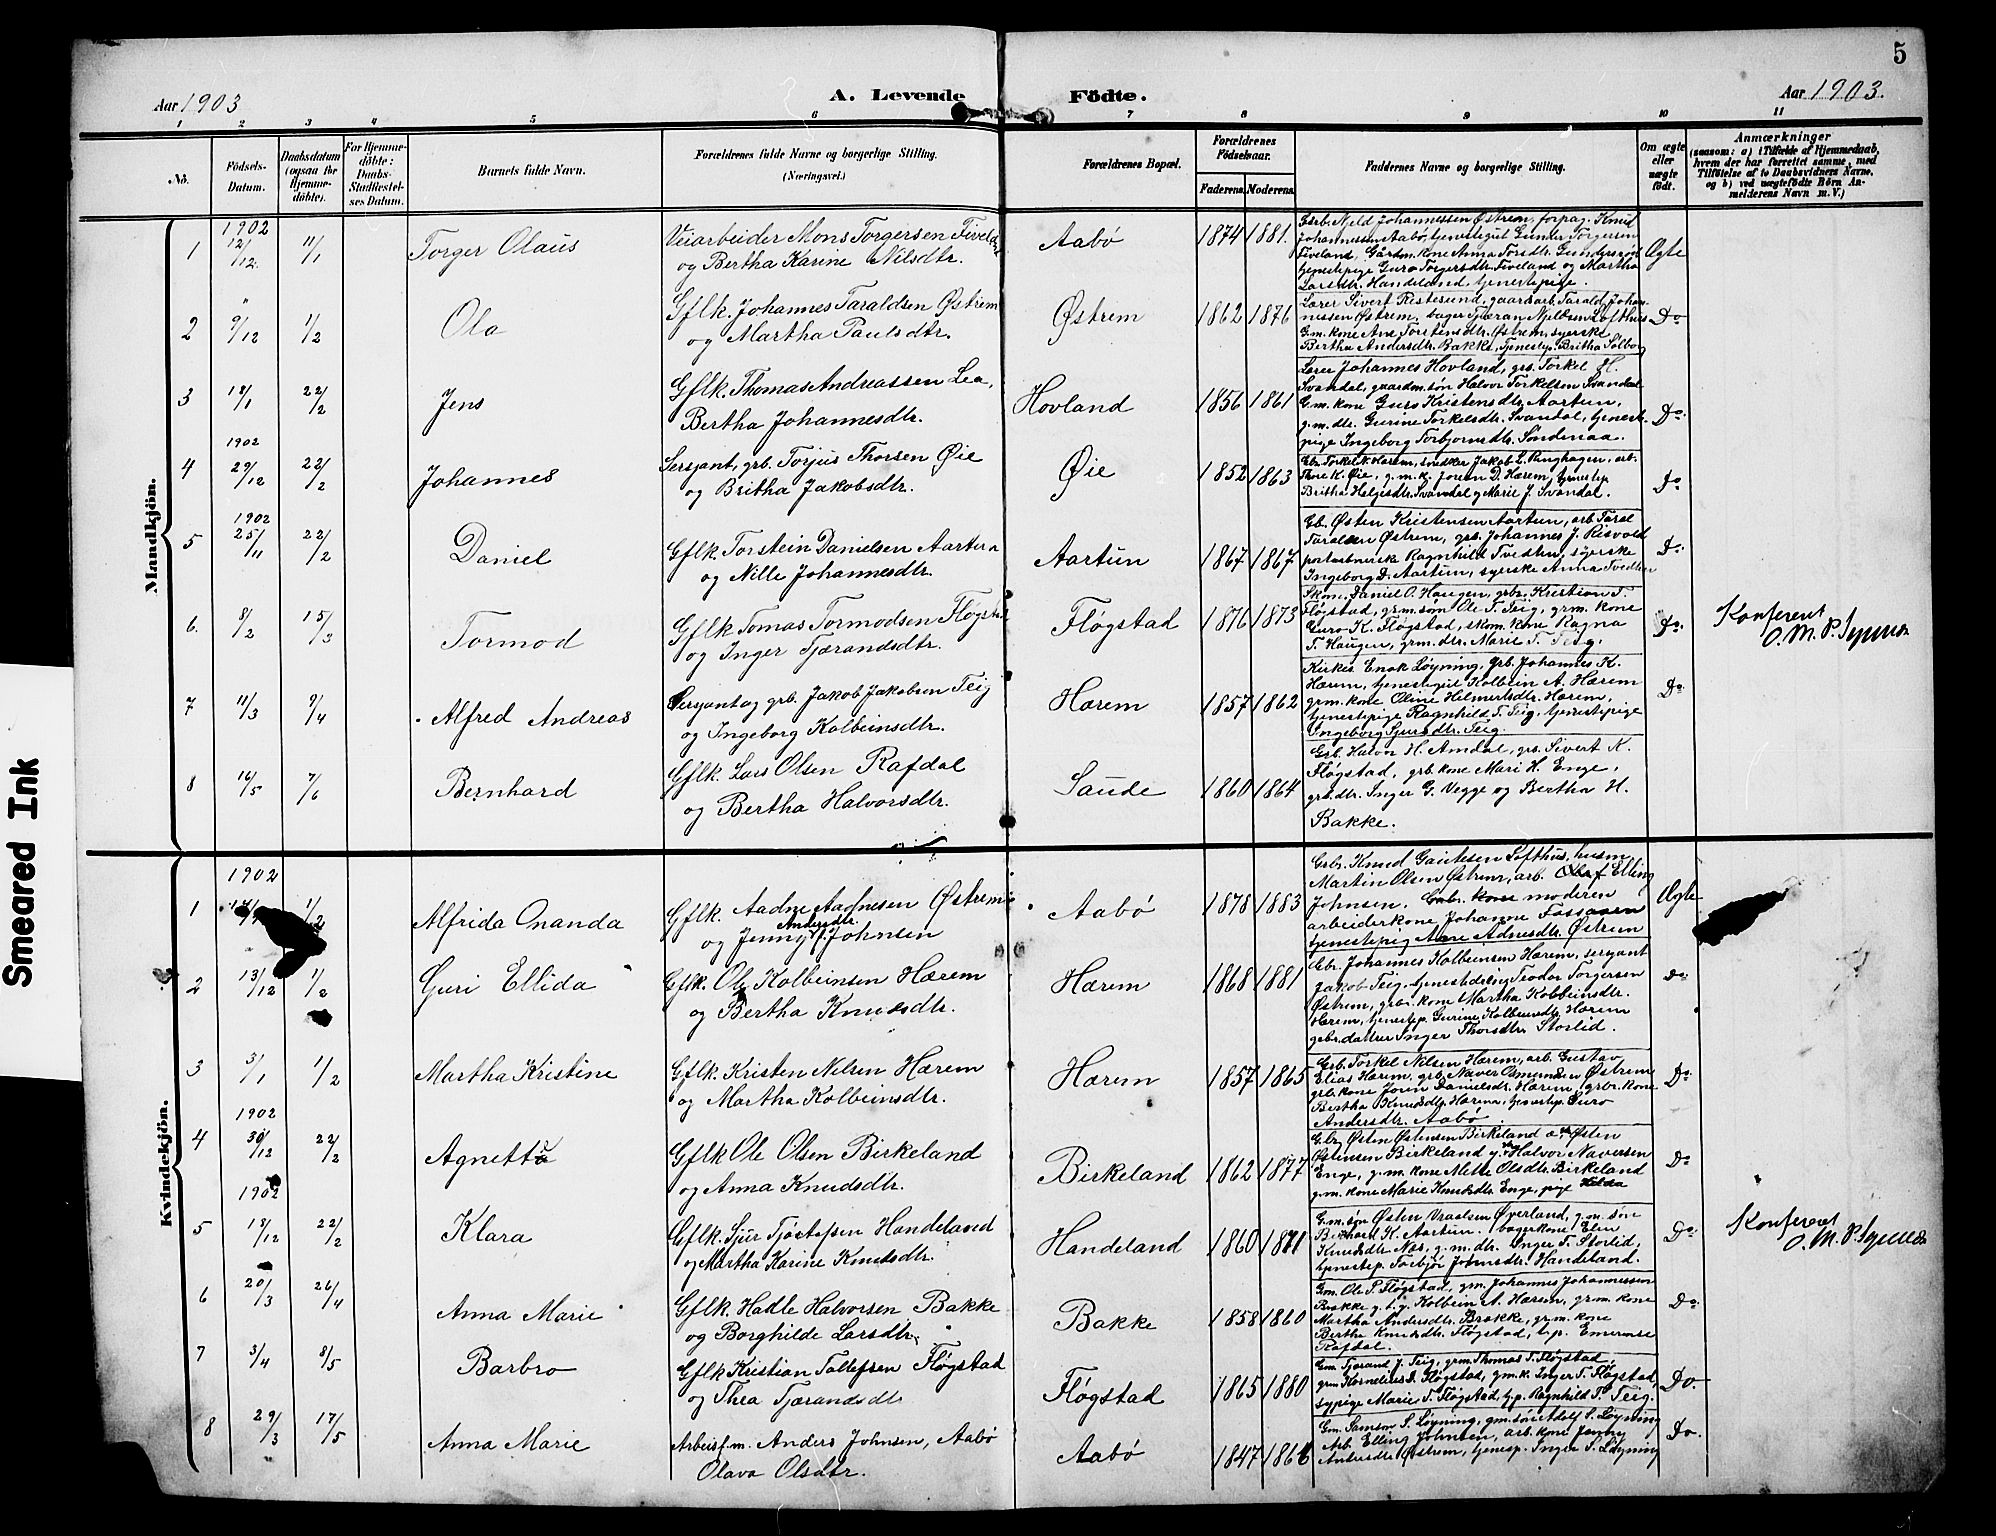 5
Aar 1903
A. Levende Födte.
Aar 1903.
1 2 3 4 5 6 7 8 9 10 11
No.
Födsels-Datum.
Daabsdatum (ogsaa for Hjemme-döbte).
For Hjemme-döbte: Daabs-Stadfæstel-ses Datum.
Barnets fulde Navn.
Forældrenes fulde Navne og borgerlige Stilling.
(Næringsvei.)
Forældrenes Bopæl.
Forældrenes Födselsaar.
Faderens. Moderens.
Faddernes Navne og borgerlige Stilling.
Om ægte eller uægte födt.
Anmærkninger
(saasom: a) i Tilfælde af Hjemmedaab, hvem der har forrettet samme, med Tilföielse af to Daabsvidners Navne, og b) ved uægtefödte Börn An-melderens Navn m. V.)
Mandkjön.
1902
1 12/12. 11/1 Torger Olaus
Veiarbeider Mons Torgersen Fiveland
og Bertha Karine Nilsdtr.
Aabø 1874 1881.
Gårb. Njeld Johannessen Østrem, forpag. Knud
Johannessen Aabø, tjenestegut Gunder Torgersen
Fiveland, Gårdm. kone Anna Torsdtr. Gundersen
tjenestepige Guro Torgersdtr. Fiveland og Martha
Larsdtr. Handeland, tjenestepige.
Ægte
2 " 9/12 1/2 Ola
Gflk. Johannes Taraldsen Østrem
og Martha Paulsdtr.
Østrem 1862 1876
Lærer Sivert Ristesund, gaardsarb. Tarald Johan-
nissen Østrem, bager Tjæran Njeldsen Lofthus
G.m. kone Ane Torstensdtr. Østrem, syerske
Bertha Andersdtr. Bakke, Tjenestep. Britha Solborg
Do
3 18/1 22/2 Jens
Gflk. Thomas Andreassen Lea,
Bertha Johannesdtr.
Hovland 1856 1861
Lærer Johannes Hovland, grb. Torkel H.
Svandal, gaardm. søn Halvor Torkelsen Svandal
G.m. kone Guro Kristensdtr. Aartun,
g.m. dtr. Gurine Torkelsdtr. Svandal, tjeneste-
pige Ingeborg Torbjørnsdtr. Søndenaa.
Do.
1902
4 29/12 22/2 Johannes
Sersjant, grb. Torjus Thorsen Øie
og Britha Jakobsdtr.
Øie 1852 1863
Gbr. Torkel K. Hærem, snedker Jakob L. Ringhagen, arb.
Thore K. Øie, g.m.k. Joren D. Hærem, tjenestep
Britha Helgesdtr. Svandal og Marie J. Svandal.
Do
1902
5 25/11 22/2 Daniel
Gflk. Torstein Danielsen Aartun
og Nille Johannesdtr.
Aartun 1867 1867
Gb. Østen Kristensen Aartun, arb. Taral
Taralsen Østrem, grb. Johannes J. Risvold
Ragnhild Tveden, syerske
Ingeborg D. Aartun, syerske Anna Tvedten
Do.
6. 8/2 15/3 Tormod
Gflk Tomas Tormodsen Fløgstad
og Inger Tjærandsdtr.
Fløgstad 1876 1873
Skom. Daniel O. Haugen, grbr. Kristian T.
Fløgstad, grm. søn Ole T. Teig, grm. kone
Guro K. Fløgstad, skom. kone Ragna
T. Haugen, grm. dtr. Marie T. Teig.
Do.
Konferert
O. M. P.
7 11/3 9/4 Alfred Andreas
Sersjant og grb. Jakob Jakobsen Teig
og Ingeborg Kolbeinsdtr.
Hærem 1857 1862
Kirkes. Enok Løyning, Grb. Johannes K.
Hærem, tjenestegut Kolbein A. Hærem
grm. kone Oline Helmertsdtr. Hærem,
tjenestepige Ragnhild T. Teig, tjenestepige
Ingeborg Sjursdtr. Teig.
Do.
8 16/5 7/6 Bernhard
Gflk. Lars Olsen Rafdal
og Bertha Halvorsdtr.
Saude 1860 1864
Grb. Halvor H. Amdal, grb. Sivert K.
Fløgstad, grb. kone Mari H. Enge,
grb. dtr. Inger G. Vegge og Bertha H.
Bakke.
Kvindekjön.
1902
1 1/2 Alfrida Ananda
Gflk. Aadne Aadnesen Østrem
Andersdtr.
og Jenny f. Johnsen
Aabø 1878 1883
Grbr. Knud Gautesen Lofthus, husm
Martin Olsen Østrem, arb. Olaf Elling
Johnsen. Grbr. kone moderen
arbeiderkone Johanne Fossaaen
tjenestepig Ane Adnesdtr. Østrem
Ægte
2 13/12 1/2 Guri Ellida
Gflk. Ole Kolbeinsen Hærem
og Bertha Knudsdtr.
Hærem 1868 1881
Gbr. Johannes Kolbeinsen Hærem, sersjant
Jakob Teig, tjenestedreng Teodor Torgersen
Østrem, grbr. kone Martha Kolbeinsdtr.
Hærem, tjenestep. Gurine Kolbeinsdtr. Hærem
gebr. datter Inger Thorsdtr. Storlid.
Do.
3 3/1 1/2 Martha Kristine
Gflk. Kristen Nilsen Hærem
og Martha Kolbeinsdtr.
Hærem 1857 1865
Grb. Torkel Nilsen Hærem, arb. Gustav
Elias Hærem, grb. Naver Osmundsen Østrem
grb. kone Joren Danielsdtr. Hærem, grbr. kone
Bertha Knudsdtr. Hærem, tjenestep. Guro
Andersdtr. Aabø
Do.
1902
4 30/12 22/2 Agnetta
Gflk Ole Olsen Birkeland
og Anna Knudsdtr.
Birkeland 1862 1877
Gbr. Østen Østensen Birkeland Østen
Østensen Birkeland Halvor Naversen
Enge, g.m. kone Mette Olsdtr. Birkeland
g.m. kone Marie Knudsdtr. Enge, pige Hilda
Do
1902
5 18/12 22/2 Klara
Gflk. Sjur Tjøstofsen Handeland
og Martha Karine Knudsdtr.
Handeland 1860 1871
G.m. søn Østen Vraalsen Øverland, g.m. søn
K. Aartun. bagerkone Elin
Knudsdtr Næs, g.m. dtr. Inger T. Storlid,
tjenestep. Torbjør Johnsdtr. Handeland.
Do.
Konferert
O. M. P.
6 20/3 26/4 Anna Marie
Gflk. Hadle Halvorsen Bakke
og Borghilde Larsdtr.
Bakke 1858 1860
Gm. Ole P. Fløgstad, gm. Johannes Johannessen
Bakke g. t. g. Kolbein A. Hærem, grm. kone
Martha Andersdtr. Bakke, grm. kone
Bertha Knudsdtr. Fløgstad, t.p. Emerense
Rafdal.
Do.
7 3/4 8/5 Barbro
Gflk Kristian Tollefsen Fløgstad
og Thea Tjærandsdtr.
Fløgstad 1865 1880
Gm. Tjerand J. Teig, grm. Thomas T. Fløgstad,
grm Kornelius T. Fløgstad, gm. k. Inger T. Fløgstad,
sypige Marie T. Fløgstad, t.p. Ragnhild T. Teig.
Do.
8 29/3 17/5 Anna Marie
Arbeisf. m. Anders Johnsen, Aabø
Olava Olsdtr.
Aabø 1847 1866
Gm. Samson S. Løyning, gm. søn Adolf S. Løyning
Arb. Elling Johnsen, arb. kone Jenny
Andersdtr Østrem, tjenesp. Inger S. Løyning
Do.
Smeared Ink